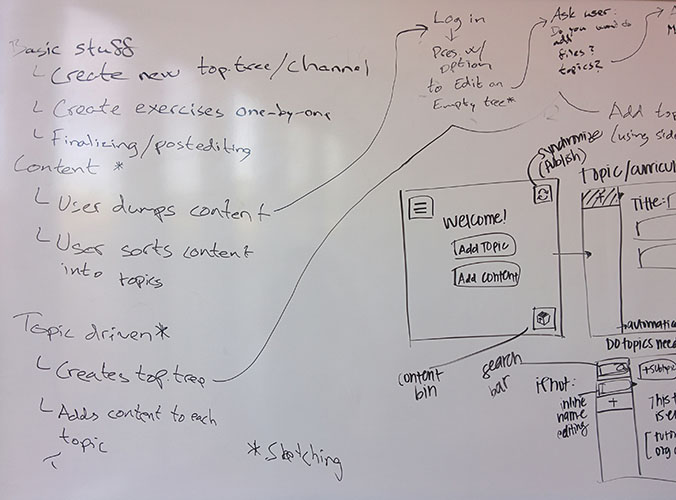 Basic stuff
Create new top.tree/channel
Create exercises one-by-one
Finalizing/postediting
Content *
User dumps content
User sorts content
into topics
Topic driven*
Creates top.tree
Adds content to each
topic
*Sketching
Log in
Pres. w/
Option
to Edit on
Empty tree*
Ask user:
Do you want to
add
files?
topics?
Add top
(using side
synchronize
(publish)
Welcome!
Add Topic
Add Content
content
bin
search
bar
Topic/curricul
Title:
+automatica
Do topics need
if not:
inline
name
editing
+
+subtopi
This t
is e
tuto
org c